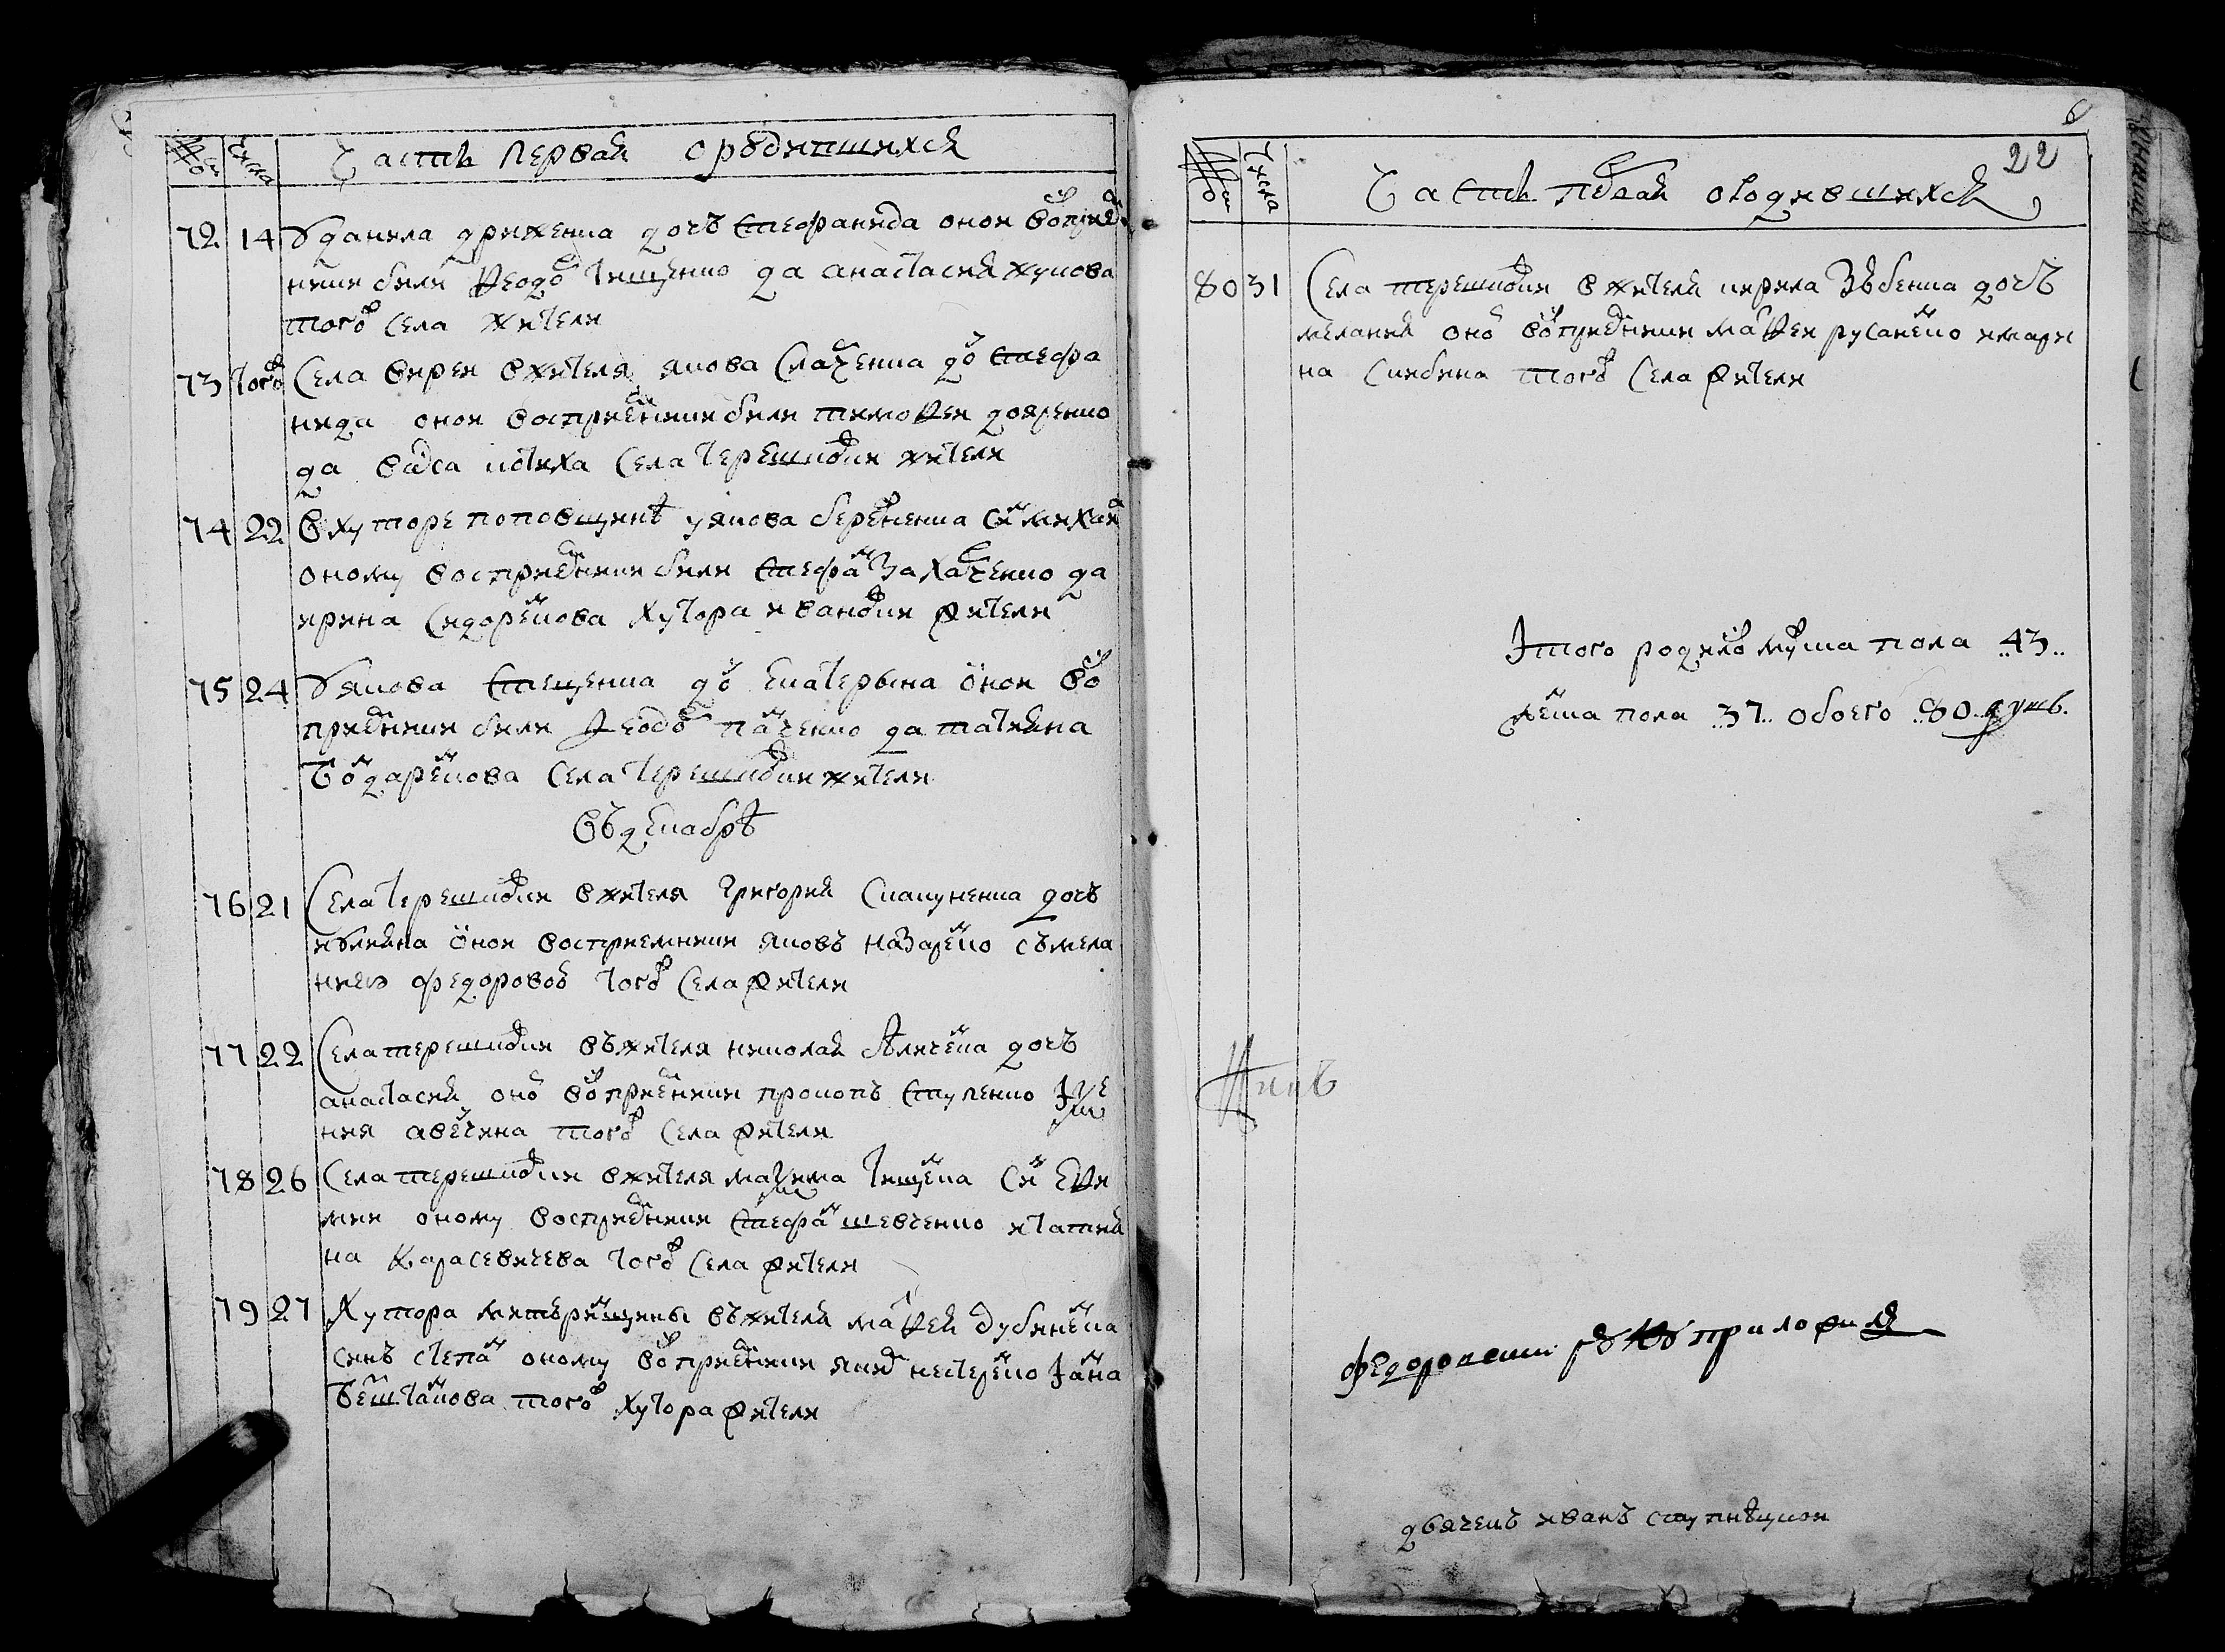 Часть первая о родившихся
72 14 У данила дриженка дочъ стефанида оной восприем
ники били Ѳеодо тищенко да анастасия жукова
того села жители
73 того Села вирей в жителя якова скаченка до стефа
нида оной восприемники били тимоѳей доященко
да васса котиха села терешковки жители
74 22 В хуторе поповщинѣ у якова беременка си михаи
оному восприемники били стефа захаченко да
ирина сидоренкова хутора ивановки жители
75 24 У якова стещенка до екатерына оной во
приемники били Ѳеодо паченко да татияна
бондаренкова села терешковки жители
Въ декабрѣ
76 21 Села терешковки в жителя григория скакуненка дочъ
иулияна оной восприемники яковъ назаренко съ мела
ниею федоровой того села жители
77 22 Села терешковки въ жителя николая дочъ
анастасия оно воприемники прокопъ ступенко
ния авечина того села жители
78 26 Села терешковки в жителя маѯима тищенка си еѵѳи
мии оному восприемники стефан шевченко и татия
на карасевичева того села жители
79 27 Хутора митьрищины въ жителя матѳея дубиненка
синъ степан оному воприемники яки нестеренко и анна
бештанкова того хутора жители
22
Часть первая о родившихся
80 31 Села терешковки в жителя кирила зъбенка дочъ
мелания оной восприемники матѳей русаненко и мари
на скибина того села жители
Итого родило мужска пола 43
женска пола 37 обоего 80 душъ
федоровский руку приложил
дьячекъ иванъ ступнѣцкой